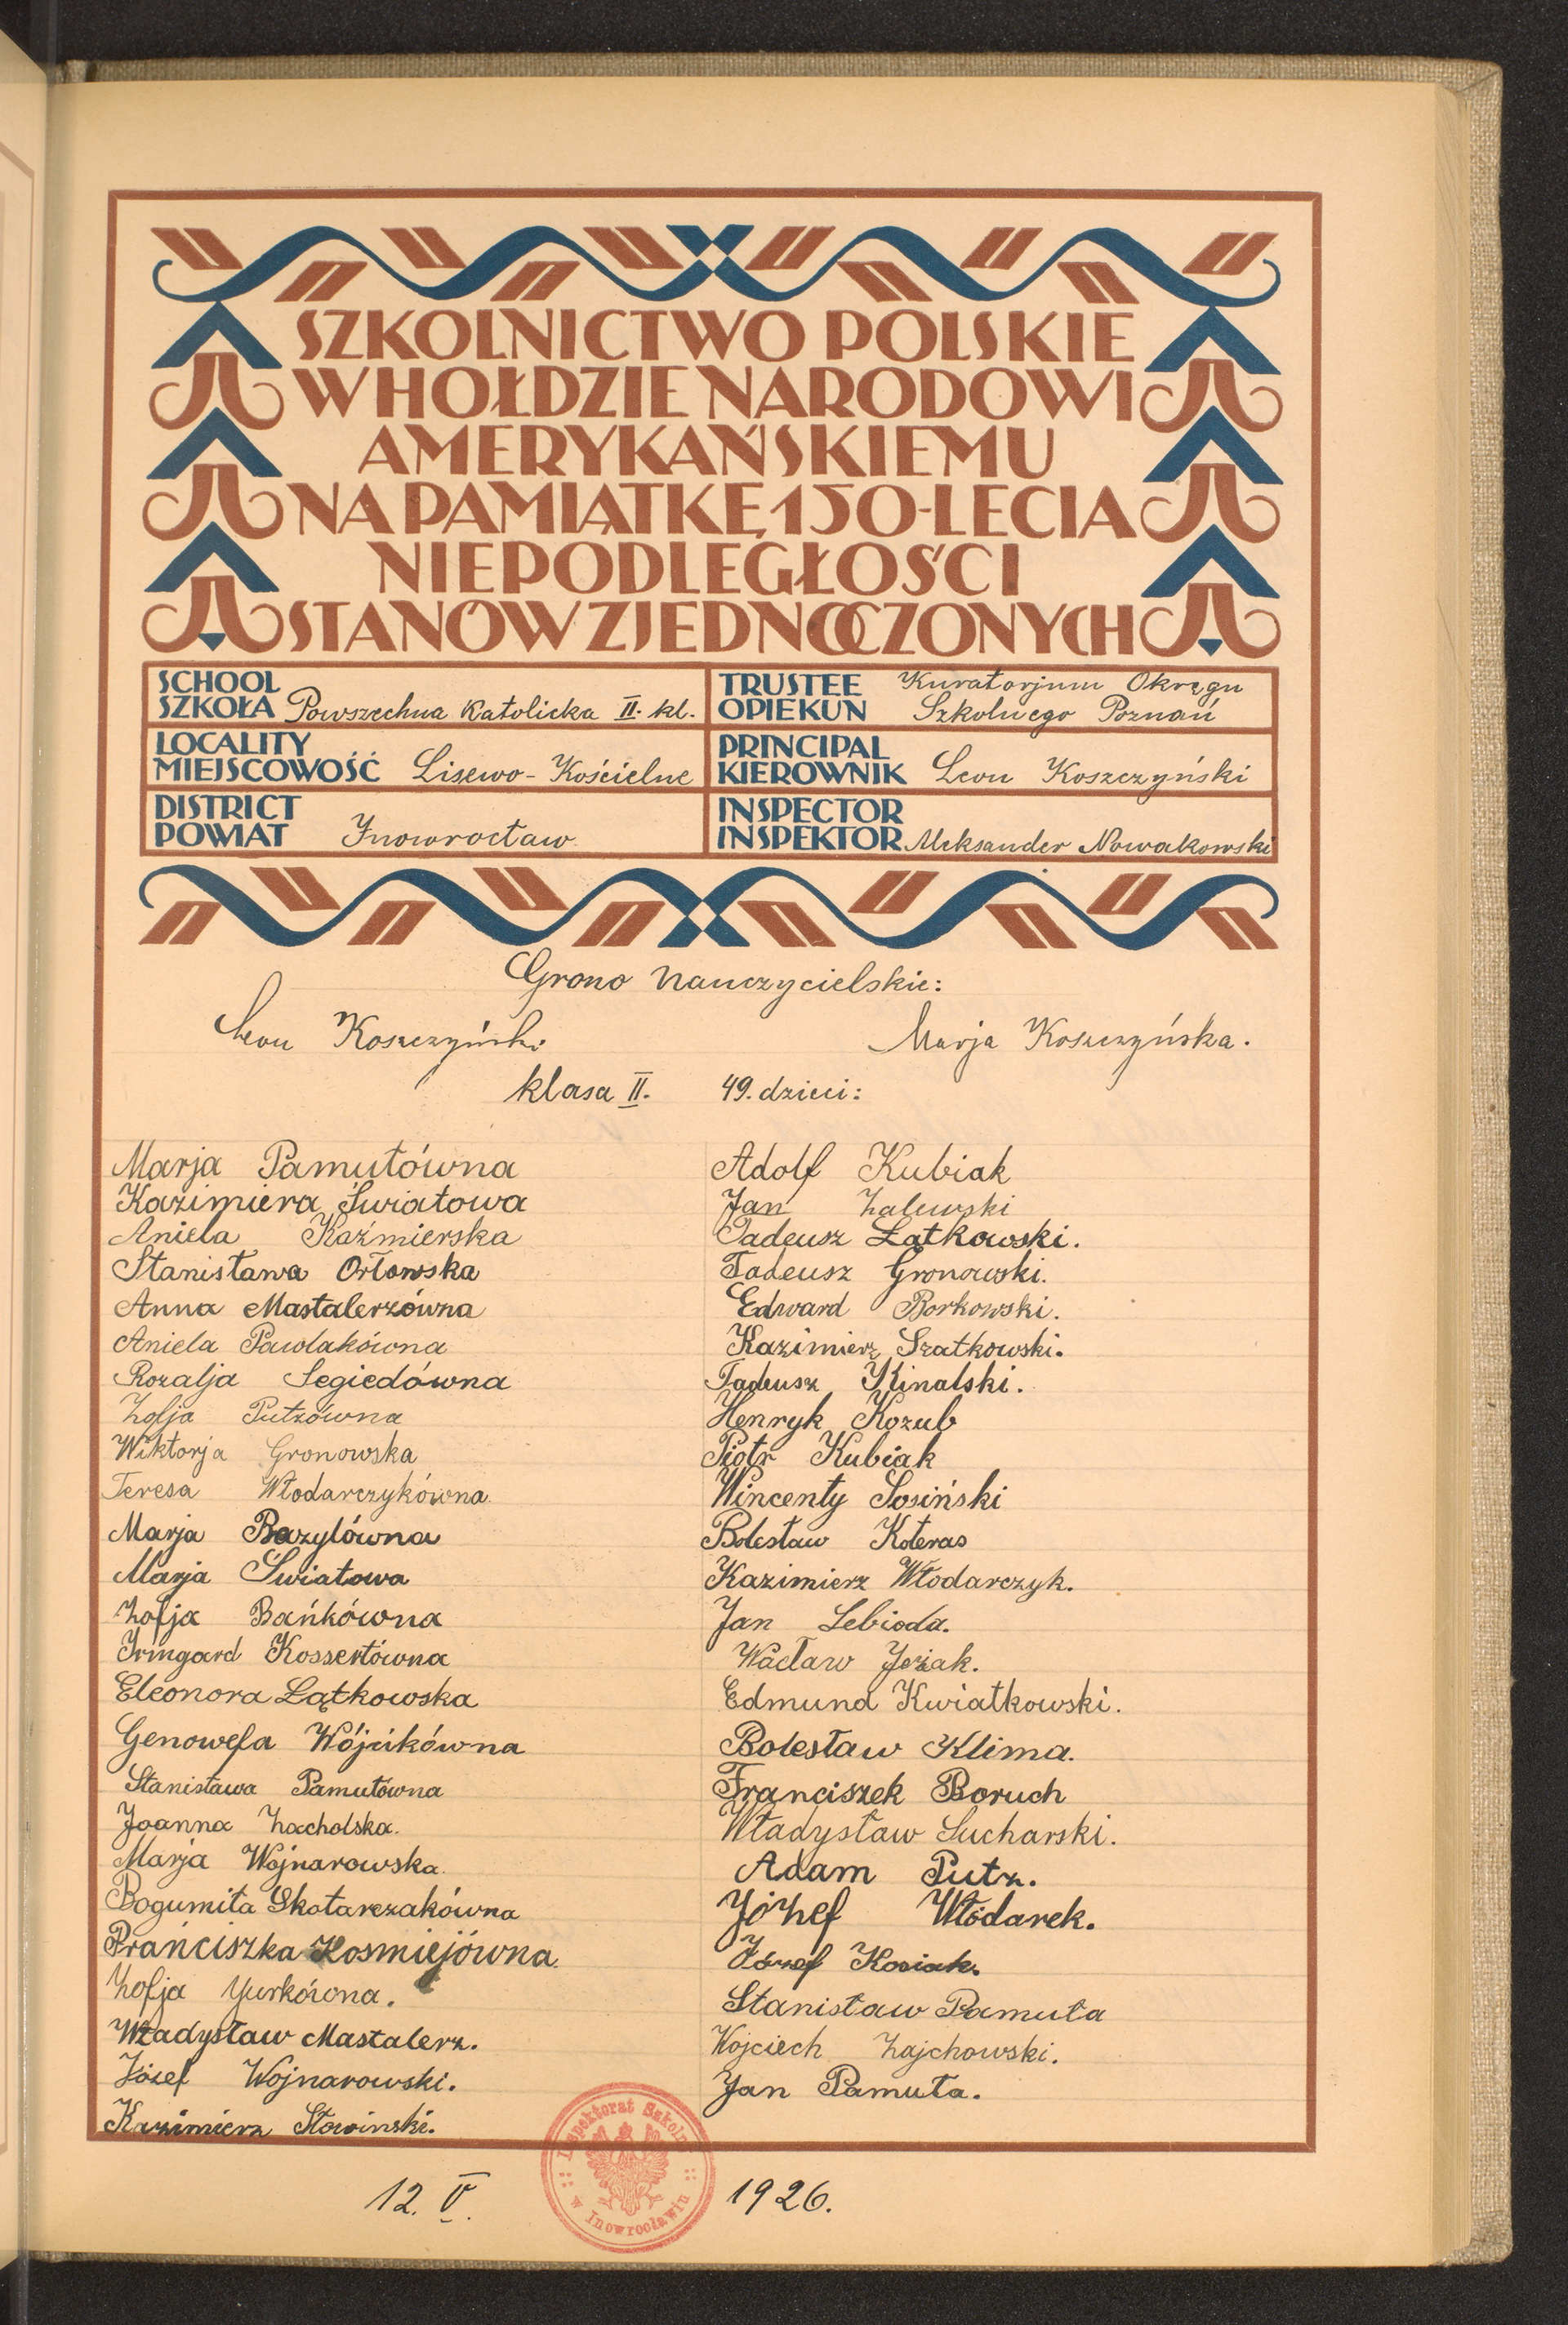 SZKOLNICTWO POLSKIE
W HOŁDZIE NARODOWI
AMERYKAŃSKIEMU
NA PAMIĄTKĘ 150-LECIA
NIEPODLEGŁOŚCI
STANÓW ZJEDNOCZONYCH
SCHOOL
SZKOŁA Powszechna Katolicka II. kl.
TRUSTEE Kuratorjum Okręgu
OPIEKUN Szkolnego Poznań
LOCALITY
MIEJSCOWOŚĆ Lisewo-Kościelne
PRINCIPAL
KIEROWNIK Leon Koszczyński
DISTRICT
POWIAT Inowrocław
INSPECTOR
INSPEKTOR Aleksander Nowakowski
Grono nauczycielskie:
Leon Koszczyński
Marja Koszczyńska.
klasa II. 49. dzieci:
Marja Pamutówna
Kazimiera Światowa
Aniela Kaźmierska
Stanisława Orłowska
Anna Mastalerzówna
Aniela Pawlakówna
Rozalja Segiedówna
Zofja Putzówna
Wiktorja Gronowska
Teresa Włodarczykówna.
Marja Bazylówna
Marja Światowa
Zofja Bańkówna
Irmgard Kossertówna
Eleonora Łątkowska
Genowefa Wójcikówna
Stanisława Pamutówna
Joanna Zacholska.
Marja Wojnarowska.
Bogumiła Skotarczakówna
Franciszka Kosmiejówna.
Zofja Jurkówna.
Władysław Mastalerz.
Józef Wojnarowski.
Kazimierz Słowinski.
Adolf Kubiak
Jan Zalewski
Tadeusz Łątkowski.
Tadeusz Gronowski.
Edward Borkowski.
Kazimierz Szatkowski.
Tadeusz Kinalski.
Henryk Kozub
Piotr Kubiak
Wincenty Sosiński
Bolesław Koteras
Kazimierz Włodarczyk.
Jan Lebioda.
Wacław Jeżak.
Edmund Kwiatkowski.
Bolesław Klima.
Franciszek Boruch
Władysław Sucharski.
Adam Putz.
Józef Włodarek.
Józef Kosiak.
Stanisław Pamuła
Wojciech Zajchowski.
Jan Pamuła.
Inspektorat Szkolny
w Inowrocławiu
12. V. 1926.